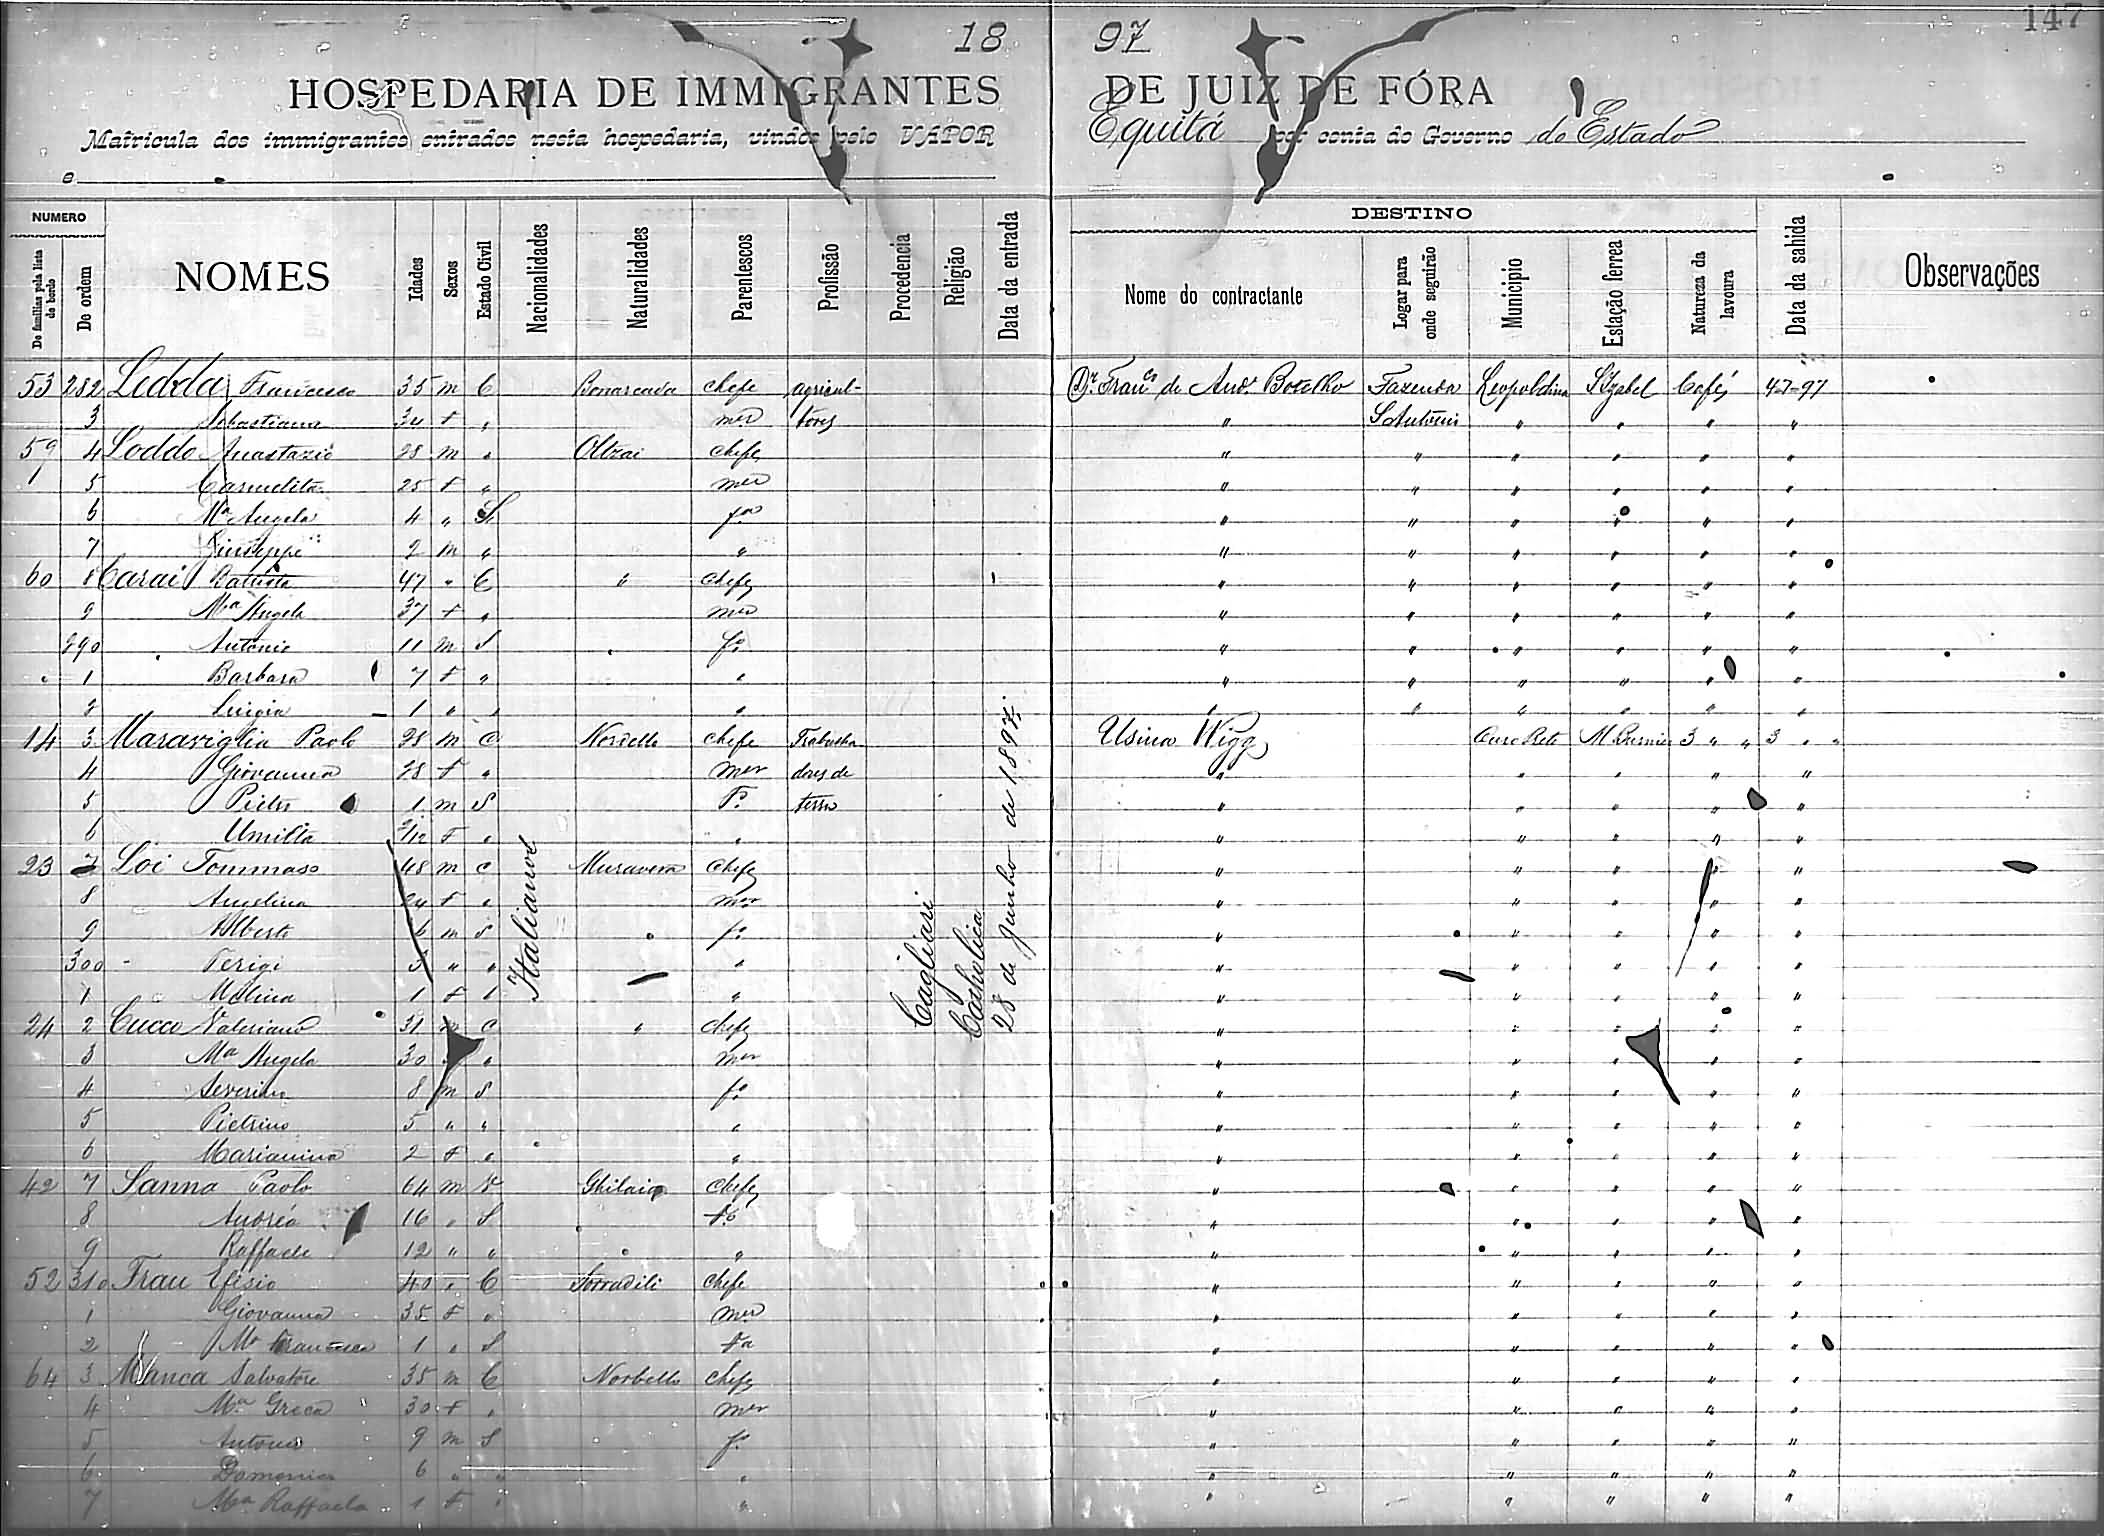 147
18 97
HOSPEDARIA DE IMMIGRANTES DE JUIZ DE FÓRA
Matricula dos immigrantes entrados nesta hospedaria, vindos pelo VAPOR Equitá por conta do Governo do Estado
e
NUMERO
DESTINO
De familias pela lista de bordo De ordem NOMES Idades Sexos Estado Civil Nacionalidades Naturalidades Parentescos Profissão Procedencia Religião Data da entrada Nome do contractante Logar para onde seguirão Municipio Estação ferrea Natureza da lavoura Data da sahida Observações
53 282 Ledda Francesco 35 m C Bonarcada chefe agricul- Dr. Franco de Andr. Botelho Fazenda Leopoldina S Izabel Café 4-7-97
3 Sebastiana 34 f " mer tores " S Antonio " " " "
59 4 Loddo Anastazio 28 m " Oltzai chefe " " " " " "
5 Carmelita 25 f " mer " " " " " "
6 Ma Angela 4 " S fa " " " " " "
7 Giuseppe 2 m " " " " " " " "
60 8 Carai Battista 47 " C " chefe " " " " " "
9 Ma Angela 37 f " mer " " " " " "
290 Antonio 11 m S fo " " " " " "
1 Barbara 7 f " " " " " " " "
2 Luigia 1 " " " " " " " " "
14 3 Maraviglia Paolo 28 m C chefe Trabalha- Usina Wigg Ouro Preto M Burnier 3 " " 3 " "
4 Giovanna 28 f " mer dores de " " " " "
5 Pietro 1 m S Fo terra " " " " "
6 Umilta /12 f " " " " " " "
23 7 Loi Tommaso 48 m C Muravera chefe " " " " "
8 Angelina 24 f " mer " " " " "
9 Alberto 6 m S fo " " " " "
300 Terigi 3 " " " " " " " "
1 Molina 1 f " " " " " " "
24 2 Cucco Valeriano 31 m C " chefe " " " " "
3 Ma Angela 30 " mer " " " " "
4 Severino 8 m S fo " " " " "
5 Pietrino 5 " " " " " " " "
6 Marianina 2 f " " " " " " "
42 7 Sanna Paolo 64 m V chefe " " " " "
8 Andréa 16 " S fo " " " " "
9 Raffaele 12 " " " " " " " "
52 310 Frau Efisio 40 " C Sorradili chefe " " " " "
1 Giovanna 35 f " mer " " " " "
2 Ma Francesca 1 " S fa " " " " "
64 3 Manca Salvatore 35 m C Norbello chefe " " " " "
4 Ma Greca 30 f " mer " " " " "
5 Antonio 9 m S fo " " " " "
6 6 " " " " " " " "
7 Ma Raffaela 1 f " " " " " " "
Italianos
Cagliari
Catholica
28 de Junho de 1897.